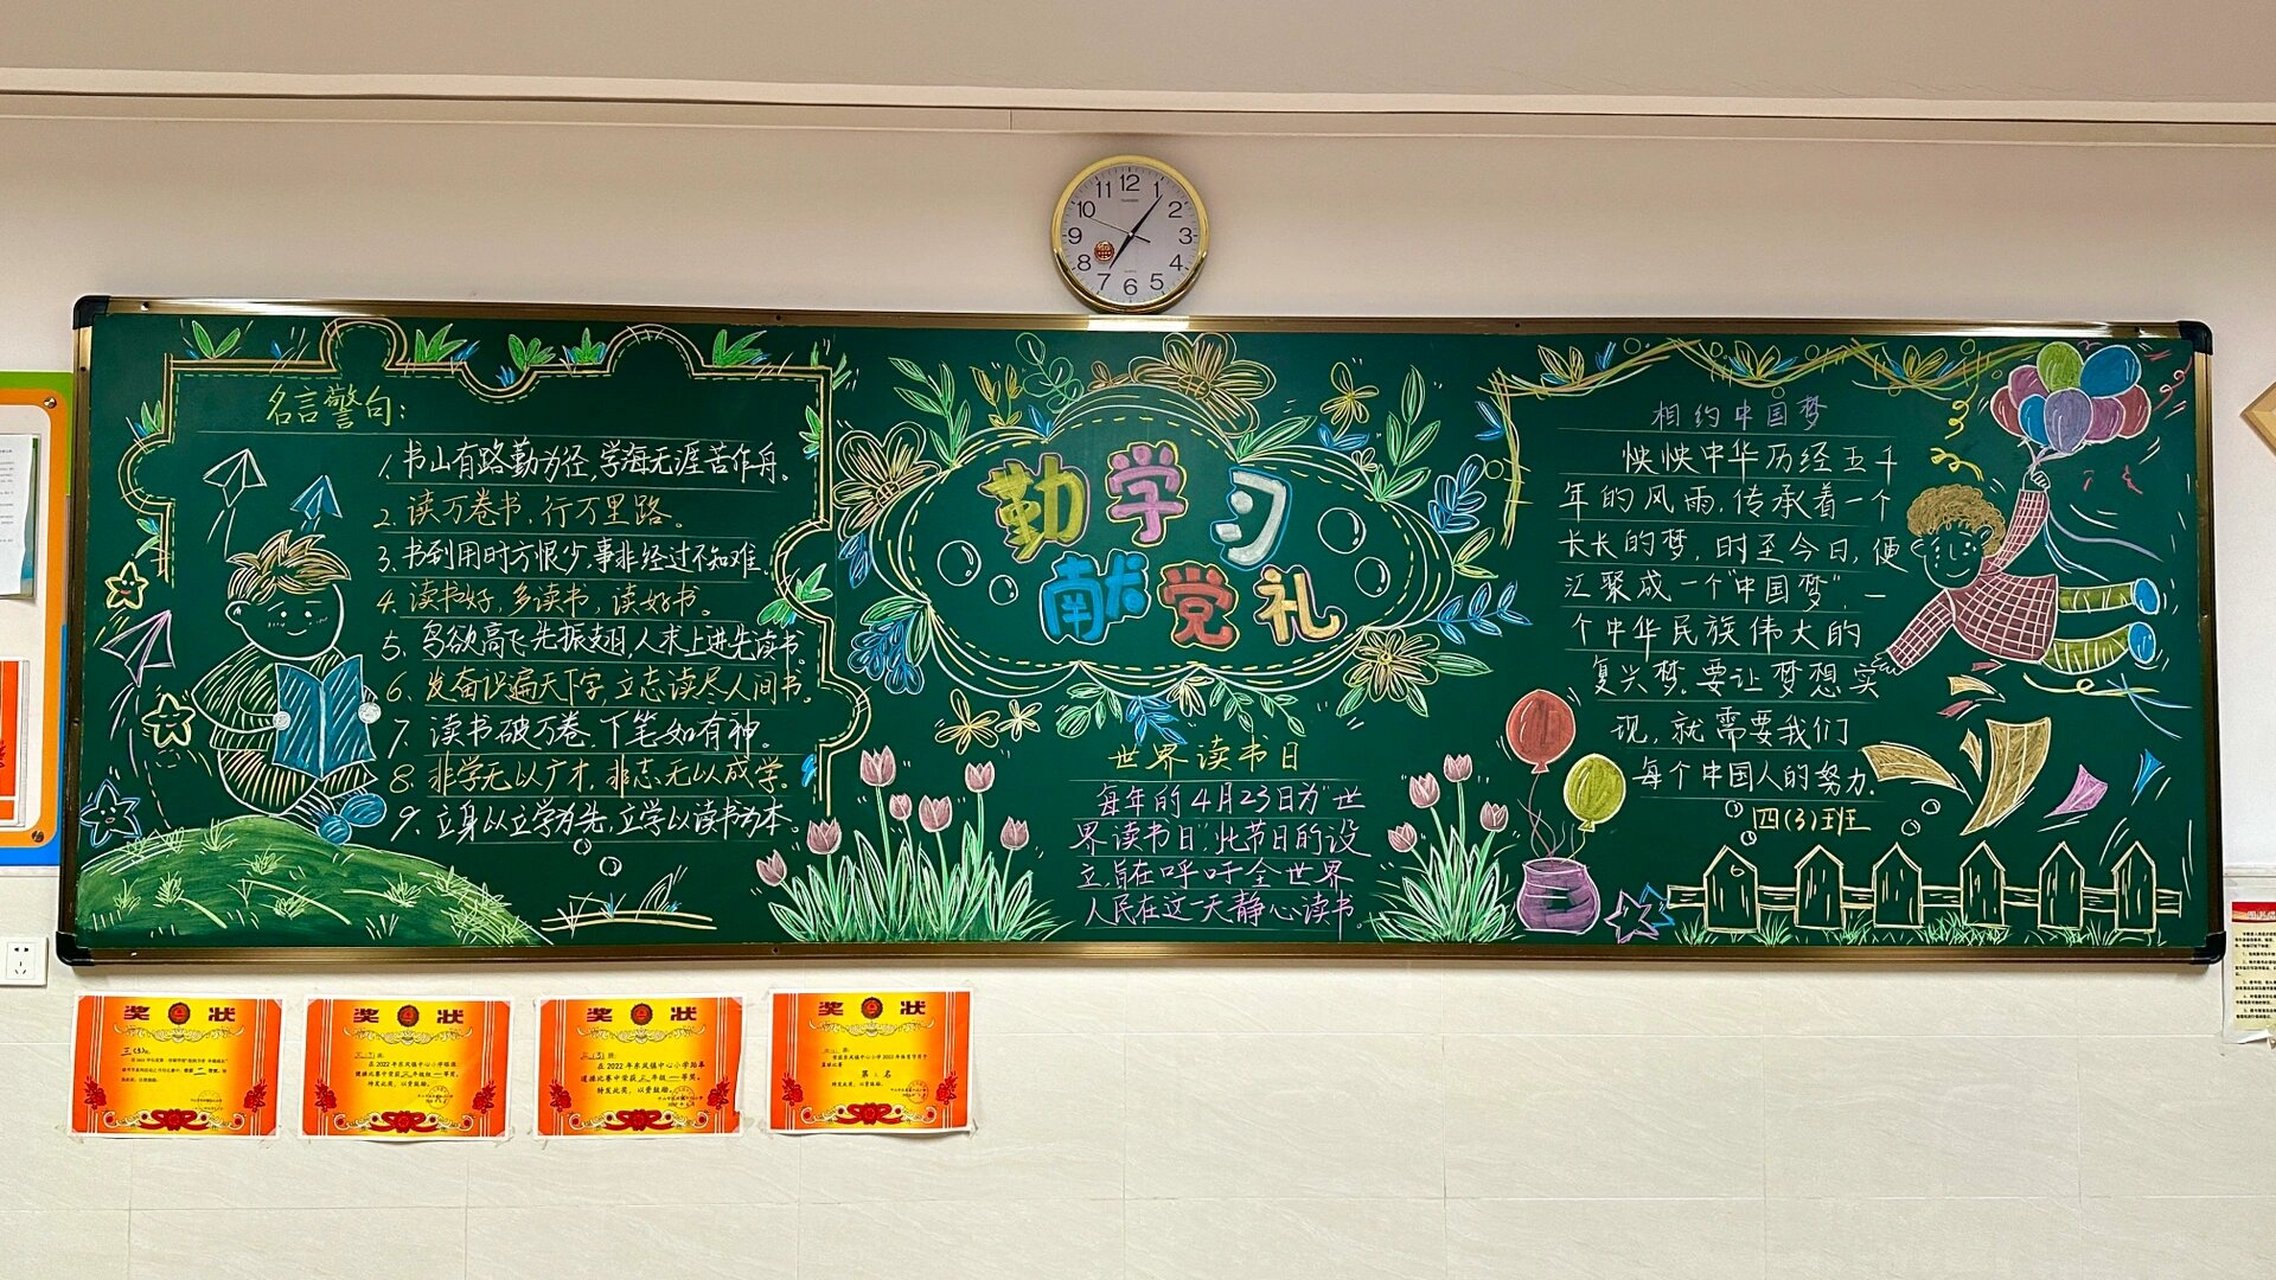 12
1
2
3
4
5
6
7
8
9
10
11
名言警句:
1.书山有路勤为径,学海无涯苦作舟。
2.读万卷书,行万里路。
3.书到用时方恨少,事非经过不知难.
4.读书好,多读书,读好书。
5、鸟欲高飞先振翅,人求上进先读书。
6、发奋识遍天下字,立志读尽人间书。
7、读书破万卷,下笔如有神。
8、非学无以广才,非志无以成学。
9、立身以立学为先,立学以读书为本。
勤学习
献党礼
世界读书日
每年的4月23日为“世
界读书日”,此节日的设
立,旨在呼吁全世界
人民在这一天静心读书
相约中国梦
怏怏中华历经五千
年的风雨,传承着一个
长长的梦,时至今日,便
汇聚成一个“中国梦”,一
个中华民族伟大的
复兴梦。要让梦想实
现,就需要我们
每个中国人的努力.
四(3)班
奖状
三(3)班:
奖状
在2022年东凤镇中心小学
特发此奖,以资鼓励。
奖状
三(3)班:
在2022年东凤镇中心小学跆拳
道操比赛中荣获三年级一等奖。
特发此奖,以资鼓励。
奖状
篮球比赛
名
特发此奖,以资鼓励。